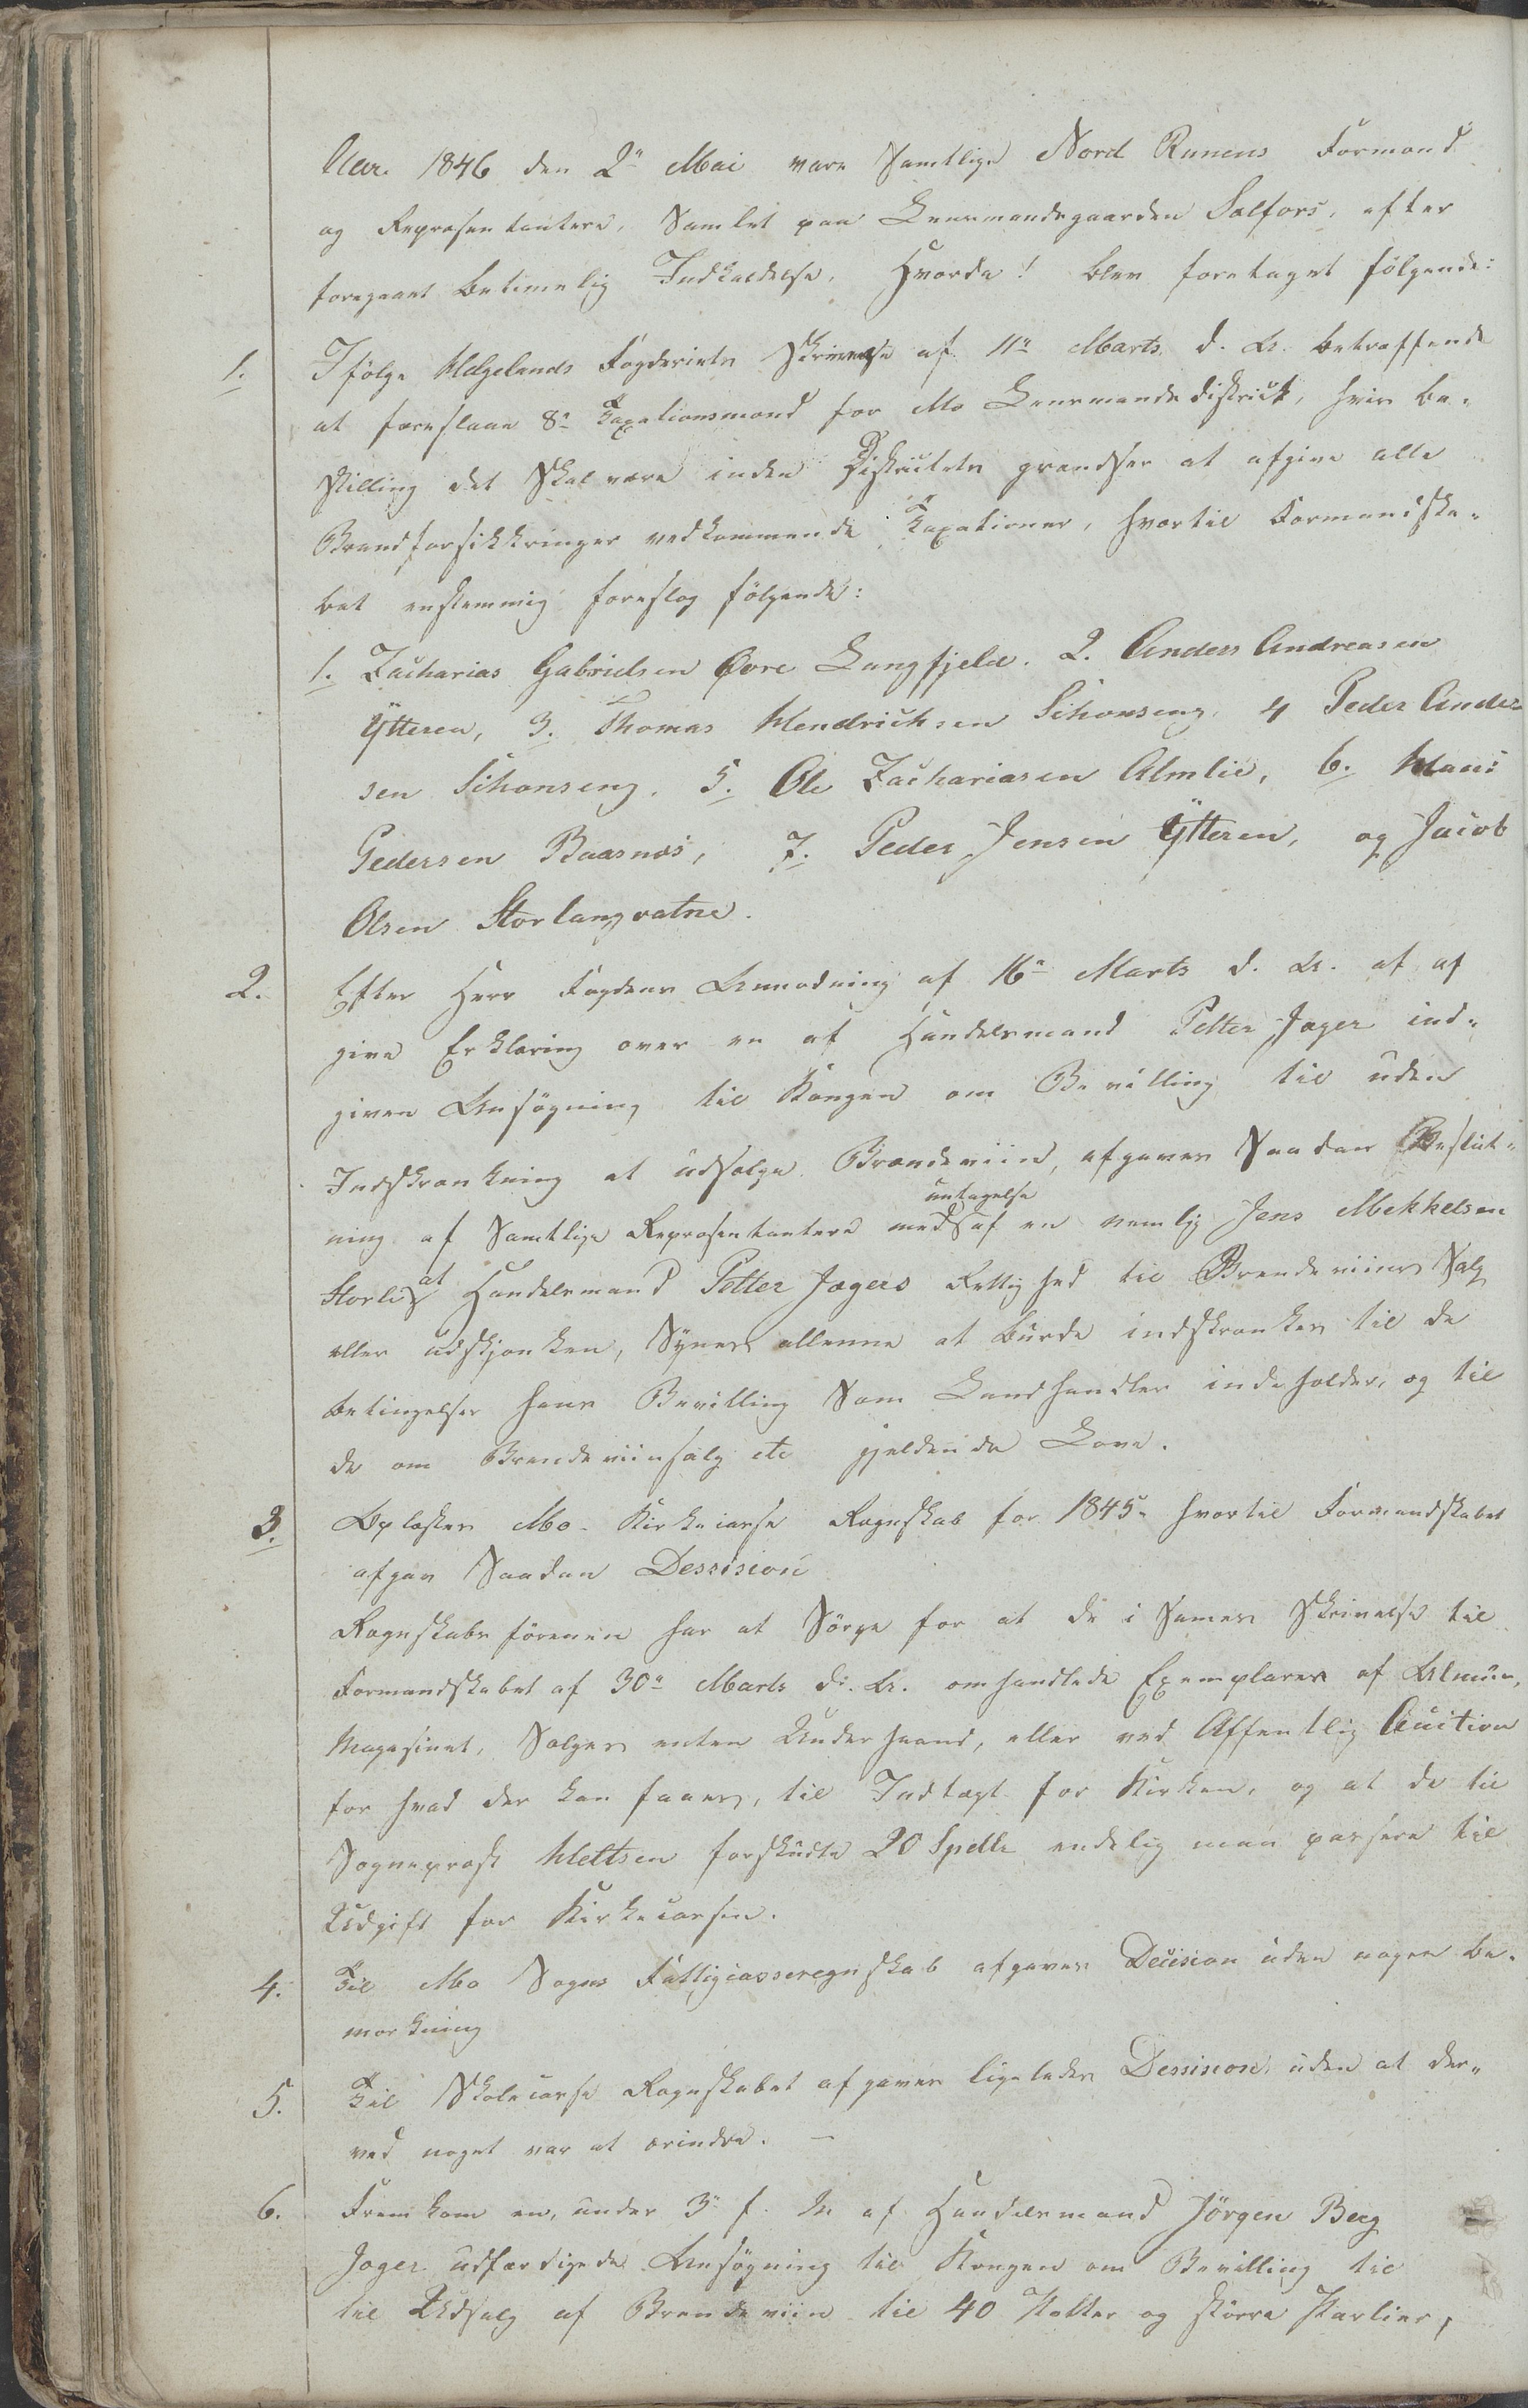 Aar. 1846 den 2ᵃ Mai vare Samtlige Nord Ranens Formænd
og Repræsentantere, Samlet paa Lensmandsgaarden Selfors, efter
foregaaet betimelig Indkaldelse, Hvorda! blev foretaget følgende:
1. Ifølge Helgelands Fogderiets Skrivelse af 11ᵗᵉ Marts d. A. betræffende
at foreslaae 8ᵗᵉ Taxationsmænd for Mo Lensmandsdistrikt, hvis be-
stilling det Skal være inden Districtets grændser at afgive alle
Brandforsikkringer vedkommende Taxationer, hvortil Formandska-
bet enstemmig foreslog følgende:
1. Zacharias Gabrielsen Øvre Langfjeld. 2. Anders Andreasen
Ytteren, 3. Thomas Hendrichsen Schonseng, 4 Peder Ander
sen Schonseng. 5. Ole Zachariasen Almlie, 6. Hans
Pedersen Baasnæs, 7. Peder Jensen Ytteren, og Jacob
Olsen Storlangvatne.
2. Efter Herr Fogdens Anmodning af 16ᵈᵉ Marts d. A. at af
give Erklæring over en af Handelsmand Petter Jæger ind-
given Ansøgning til Kongen om Bevilling til uden
Indskrænkning at udsælge Brændeviin, afgaves Saadan Beslut-
ning af Samtlige Repræsentantere med untagelse af en nemlig Jens Mekkelsen
Storli at Handelsmand Petter Jægers Rettighed til Brændeviins Salg
eller udskjænken, Synes allene at burde indskrænkes til de
betingelser hans Bevilling Som Landhandler indeholder, og til
de om Brændeviinsalg etc gjeldende Love.
3. Oplæstes Mo Kirkecasse Regnskab for 1845. hvortil Formandskabet
afgav Saadan Dessision
Regnskabsføreren har at Sørge for at de i Sammes Skrivelse til
Formandskabet af 30ᵗᵉ Marts d. A. omhandlede Exemplarer af Almue-
Magasinet, Sælges enten Underhaand, eller ved Offentlig Auction
for hvad der kan faaes, til Indtægt for Kirken, og at de til
Sogneprest Heltzen forskudte 20 Spdlr endelig maa passere til
Udgift for Kirkecassen.
4. Til Mo Sogns Fattigcasseregnskab afgaves Decision uden nogen be-
mærkning
5. Til Skolecasse Regnskabet afgaves ligeledes Dessision uden at der-
ved noget var at erindre. —
6. Fremkom en, under 3ᵈ f. M af Handelsmand Jörgen Berg
Jæger udfærdigede Ansøgning til Kongen om Bevilling til
til Udsalg af Brændeviin til 40 Potter og større Partier,